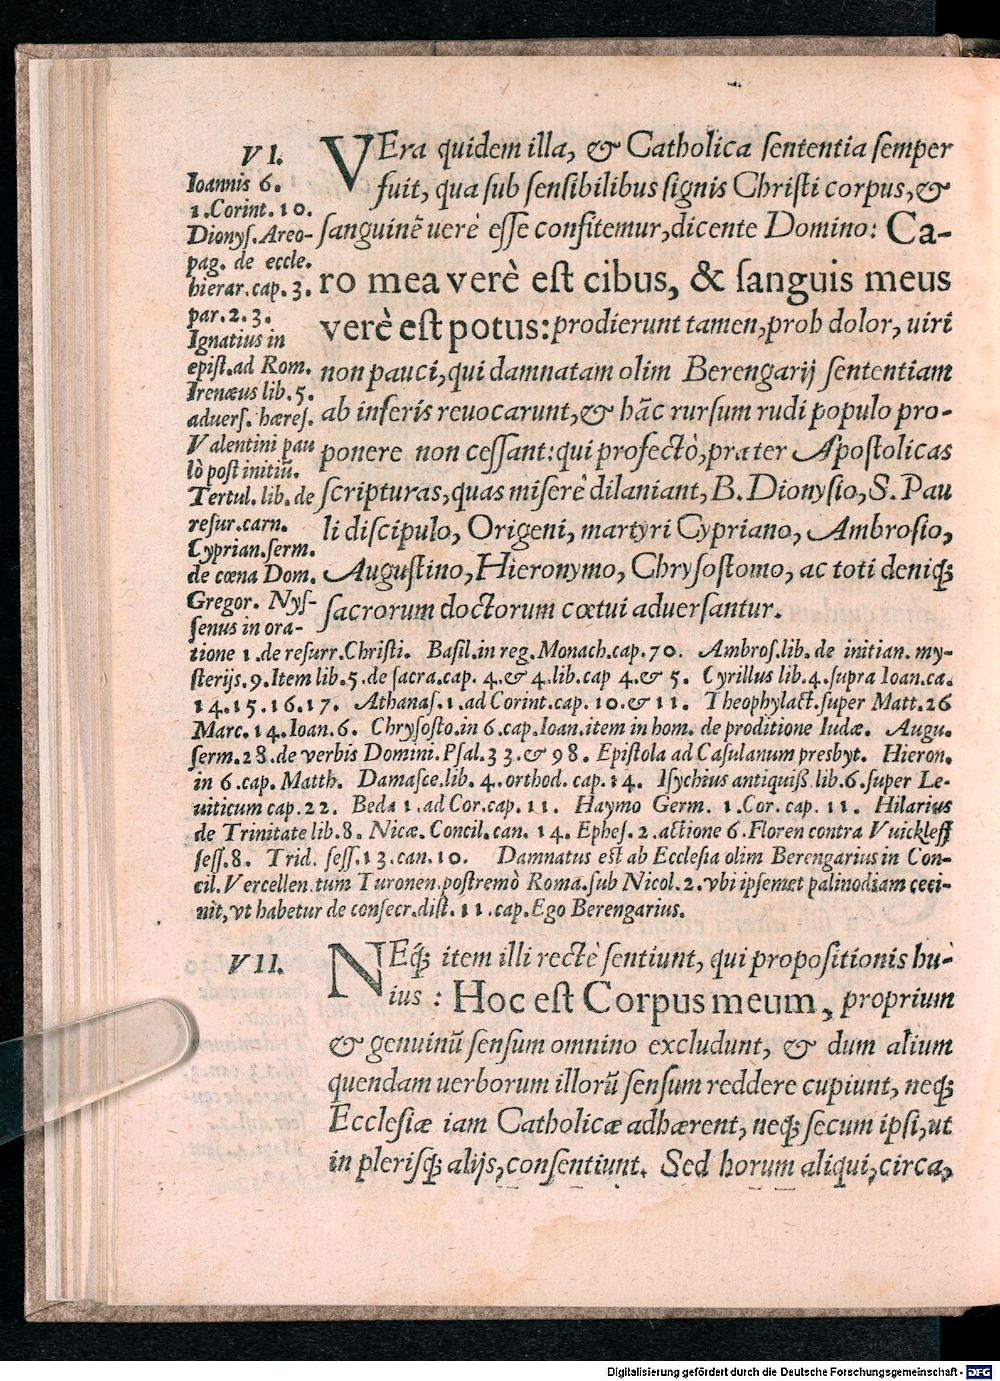 VI.
Ioannis 6.
1.Corint.10.
Dionys.Areo-
pag. de eccle.
hierar.cap.3.
par.2.3.
Ignatius in
epist.ad Rom.
Irenæus lib.5.
aduers. hæres.
Valentini pau
lò post initiũ.
Tertul.lib.de
resur.carn.
Cyprian.serm.
de cœna Dom.
Gregor. Nys-
senus in ora-
VEra quidem illa, & Catholica sententia semper
fuit, qua sub sensibilibus signis Christi corpus,&
sanguinẽ uerè esse confitemur,dicente Domino: Ca-
ro mea verè est cibus, & sanguis meus
verè est potus:prodierunt tamen,proh dolor, uiri
non pauci,qui damnatam olim Berengarij sententiam
ab inferis reuocarunt,& hãc rursum rudi populo pro-
ponere non cessant:qui profectò,præter Apostolicas
scripturas,quas miserè dilaniant, B. Dionysio, S. Pau
li discipulo, Origeni, martyri Cypriano, Ambrosio,
Augustino,Hieronymo, Chrysostomo, ac toti deniq;
sacrorum doctorum cœtui aduersantur.
tione 1.de resurr.Christi. Basil.in reg.Monach.cap.70. Ambros.lib. de initian. my-
sterijs.9.Item lib.5.de sacra.cap. 4.& 4.lib.cap 4.& 5. Cyrillus lib.4.supra Ioan.ca.
14.15.16.17. Athanas.1.ad Corint.cap.10.& 11. Theophylact.super Matt.26
Marc.14.Ioan.6. Chrysosto.in 6.cap.Ioan.item in hom. de proditione Iudæ. Augu.
serm.28.de verbis Domini.Psal.33.& 98. Epistola ad Casulanum presbyt. Hieron.
in 6.cap. Matth. Damasce.lib. 4.orthod. cap.14. Isychius antiquiß.lib.6.super Le-
uiticum cap.22. Beda 1.ad Cor.cap.11. Haymo Germ. 1.Cor. cap. 11. Hilarius
de Trinitate lib.8. Nicæ. Concil.can. 14. Ephes.2.actione 6.Floren contra Vuickleff
sess.8. Trid. sess.13.can.10. Damnatus est ab Ecclesia olim Berengarius in Con-
cil.Vercellen.tum Turonen.postremò Roma.sub Nicol.2.vbi ipsemet palinodiam ceci-
nit,vt habetur de consecr.dist.11.cap.Ego Berengarius.
VII.
NEq; item illi rectè sentiunt, qui propositionis hu-
ius : Hoc est Corpus meum, proprium
& genuinũ sensum omnino excludunt, & dum alium
quendam uerborum illorũ sensum reddere cupiunt, neq;
Ecclesiæ iam Catholicæ adhærent, neq; secum ipsi,ut
in plerisq; alijs,consentiunt. Sed horum aliqui,circa,
Digitalisierung gefördert durch die Deutsche Forschungsgemeinschaft - DFG